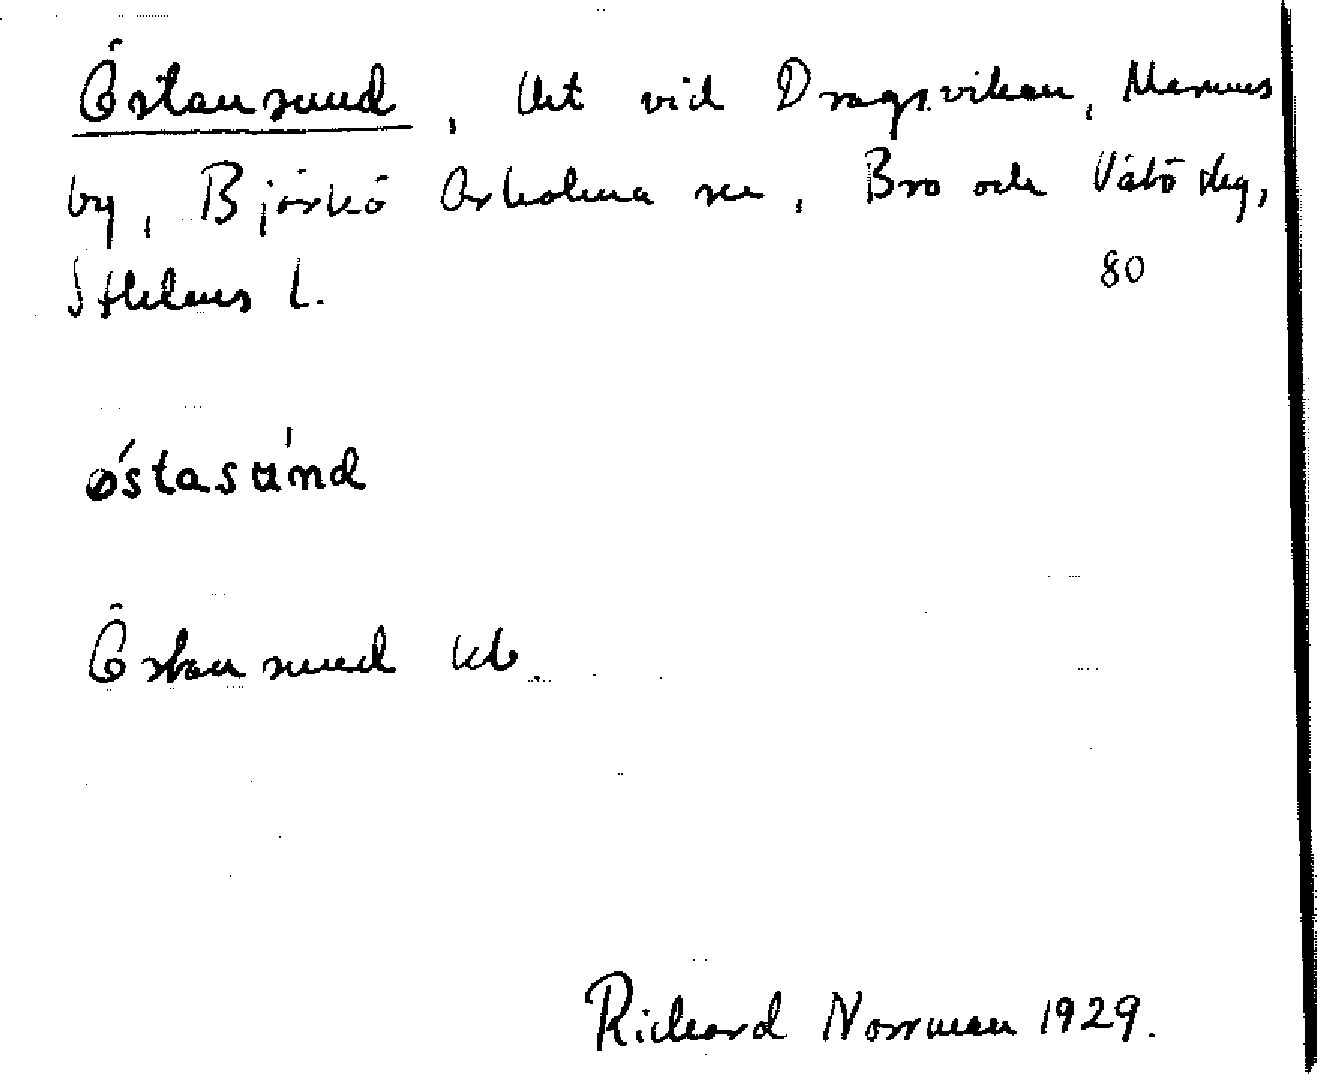 Östansund, Urt vid Dragsviken, Marums
by, Björkö Arholma sn, Bro och Vätö skg,
Sthlms l. 80
östasund
Östansund kb.
Richard Norrman 1929.